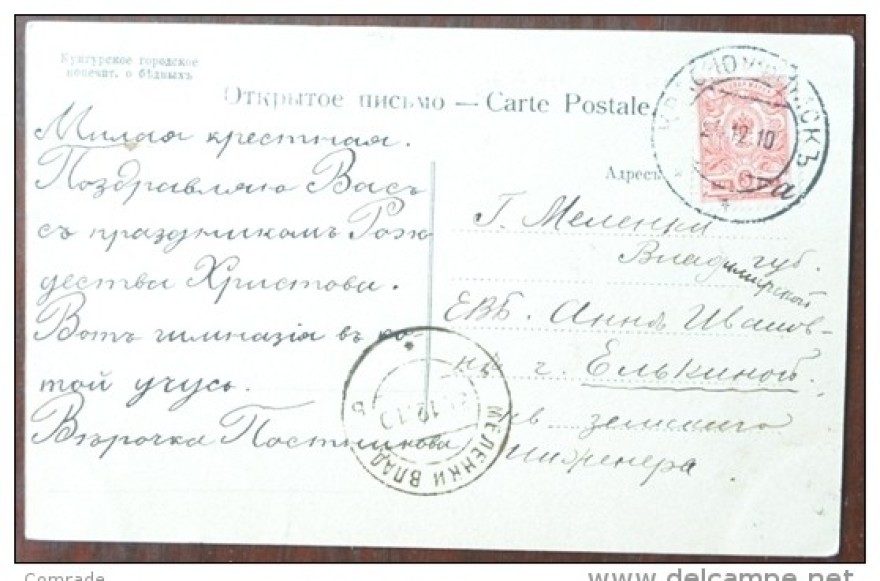 Кунгурское городское
попечит. о бѣдныхъ
Открытое письмо — Carte Postale.
Милая крестная.
Поздравляю Васъ
съ праздникомъ Рож
дества Христова.
Вотъ гимназія въ ко-
той учусь.
Вѣрочка Постникова
КРАСНОУФИМСКЪ
12.10
Адресъ
Г. Меленки
Владимирской губ.
ЕВБ. Аннѣ Иванов-
нѣ Елькиной.
кв земского
инженера
МЕЛЕНКИ ВЛАД.
12.10
Comrade
www.delcampe.net